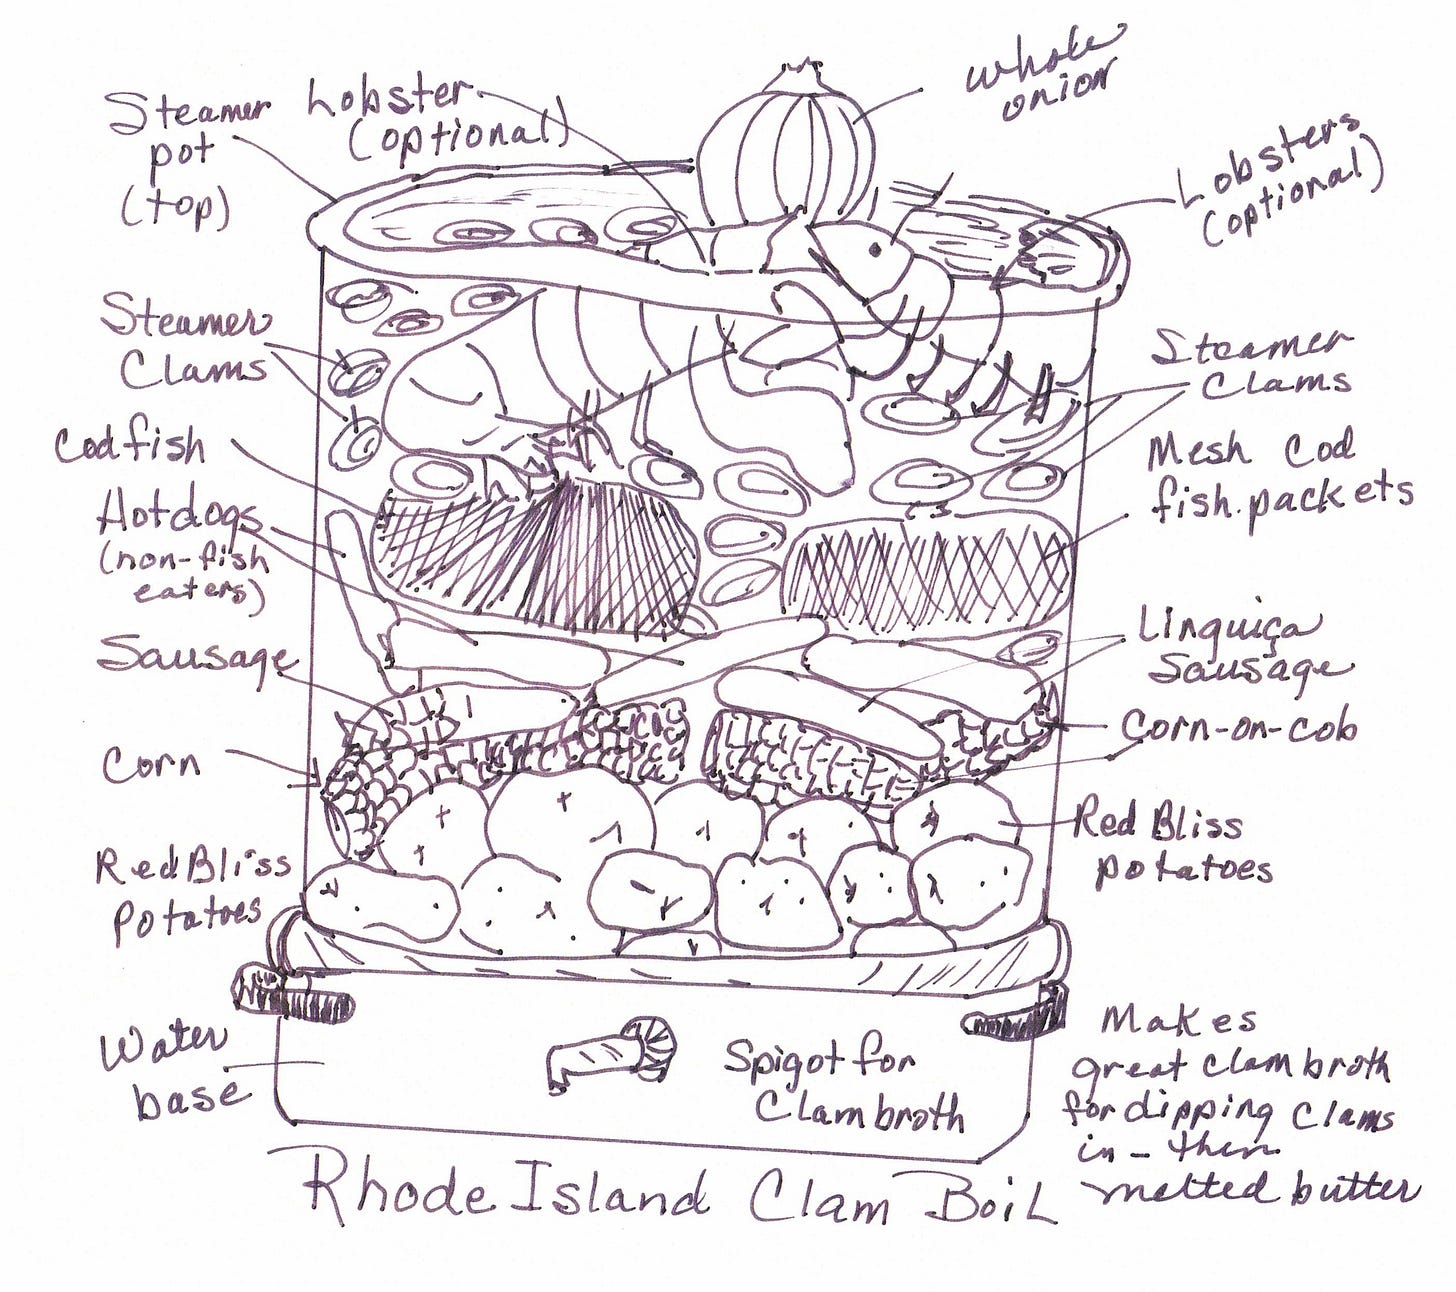 Steamer
pot
(top)
Lobster
(optional)
whole
onion
Lobsters
(optional)
Steamer
Clams
Codfish
Hotdogs
(non-fish
eaters)
Sausage
Corn
Red Bliss
Potatoes
Water
base
Steamer
Clams
Mesh Cod
fish packets
Linguiça
Sausage
Corn-on-cob
Red Bliss
potatoes
Spigot for
Clam broth
Makes
great clam broth
for dipping clams
in - then
melted butter
Rhode Island Clam Boil